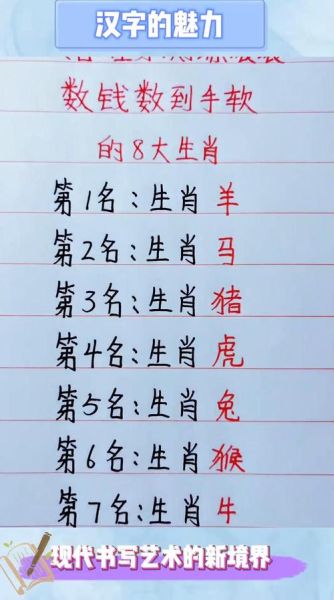 汉字的魅力
数钱数到手软
的8大生肖
第1名:生肖羊
第2名:生肖马
第3名:生肖猪
第4名:生肖虎
第5名:生肖兔
第6名:生肖猴
第7名:生肖牛
现代书写艺术的新境界